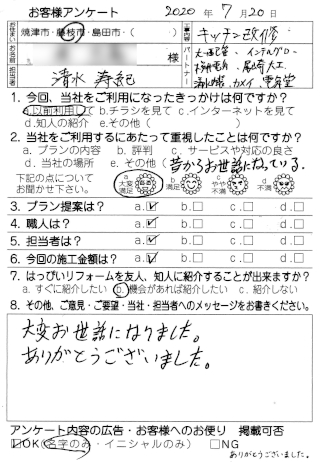 お客様アンケート 2020年7月20日
お住まい 焼津市・藤枝市・島田市・( )
工事内容 キッチン改修
お名前 様
パートナー
担当者 清水寿紀
1. 今回、当社をご利用になったきっかけは何ですか?
a.以前利用して b.チラシを見て c.インターネットを見て
d.知人の紹介 e.その他(
2. 当社をご利用するにあたって重視したことは何ですか?
a. プランの内容 b. 評判 c. サービスや対応の良さ
d. 当社の場所 e. その他( 昔からお世話になっている.
下記の点について
お聞かせ下さい。
a 大変満足 b 満足 c やや不満 d 不満
3. プラン提案は? a.☑ b.☐ c.☐ d.☐
4. 職人は? a.☑ b.☐ c.☐ d.☐
5. 担当者は? a.☑ b.☐ c.☐ d.☐
6. 今回の施工金額は? a.☑ b.☐ c.☐ d.☐
7. はっぴいリフォームを友人、知人に紹介することが出来ますか?
a. すぐに紹介したい b.機会があれば紹介したい c. 紹介しない
8. その他、ご意見・ご要望・当社・担当者へのメッセージをお書きください。
大変お世話になりました。
ありがとうございました。
アンケート内容の広告・お客様へのお便り 掲載可否
☑OK(名字のみ・イニシャルのみ) ☐NG
ありがとうございました。